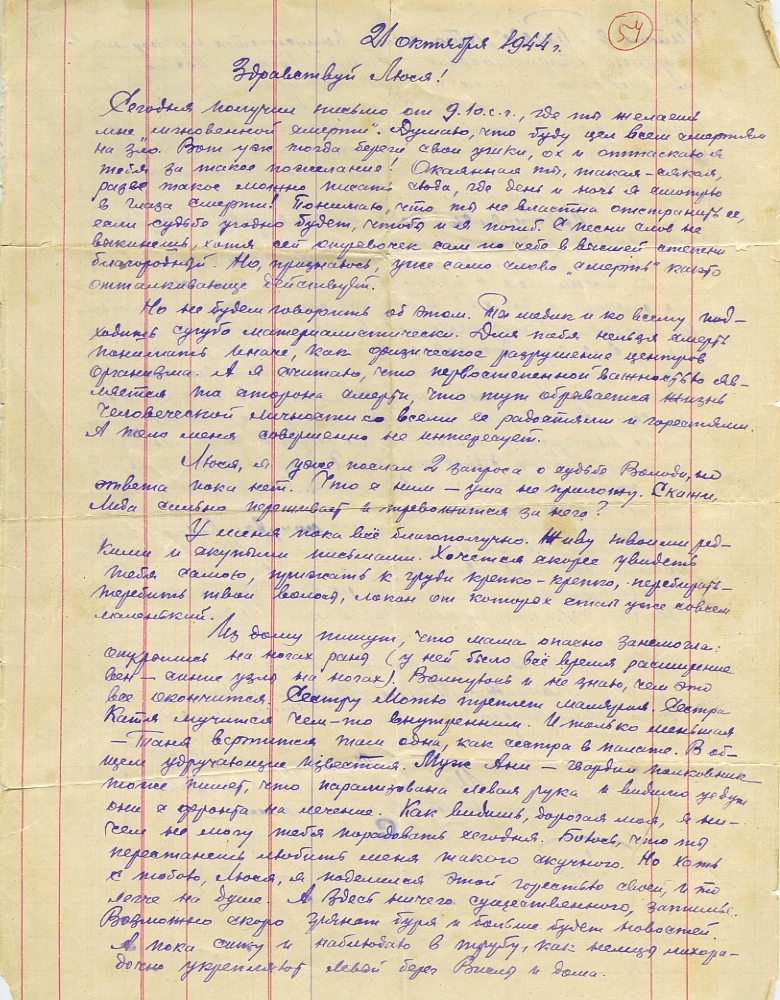 54
21 октября 1944 г.
Здравствуй Люся!
Сегодня получил письмо от 9.10.с.г., где ты желаешь
мне „мгновенной смерти“. Думаю, что буду цел всем смертям
на зло. Вот уж тогда береги свои ушки, ох и оттаскаю я
тебя за такое пожелание! Окаянная ты, такая-сякая,
разве такое можно писать сюда, где день и ночь я смотрю
в глаза смерти! Понимаю, что ты не властна отстранить ее,
если судьбе угодно будет, чтобы и я погиб. С песни слов не
выкинешь, хотя сей сам по себе в высшей степени
благородный. Но, признаюсь, уже само слово „смерть“ как-то
отталкивающе действует.
Но не будем говорить об этом. Ты медик и ко всему под-
ходить сугубо материалистически. Для тебя нельзя смерть
понимать иначе, как физическое разрушение центров
организма. А я считаю, что первостепенной важностью яв-
ляется та сторона смерти, что тут обрывается жизнь
человеческой личности со всеми ее радостями и горестями.
А тело меня совершенно не интересует.
Люся, я уже послал 2 запроса о судьбе Володи, но
ответа пока нет. Что с ним – ума не приложу. Скажи,
Люба сильно переживает и тревожится за него?
У меня пока всё благополучно. Живу твоими ред-
кими и скупыми письмами. Хочется скорее увидеть
тебя самою, прижать к груди крепко-крепко, перебирать-
теребить твои волося, локон от которых стал уже совсем
маленький.
Из дому пишут, что мама опасно занемогла:
открылись на ногах раны (у ней было всё время расширение
вен – синие узлы на ногах). Волнуюсь и не знаю, чем это
всё окончится. Сестру Мотю треплет малярия. Сестра
Катя мучится чем-то внутренним. И только меньшая
– Таня вертится там одна, как сестра в палате. В об-
щем удручающие известия. Муж Ани – гвардии полковник
тоже пишет, что парализована левая рука и видимо уедут
они с фронта на лечение. Как видишь, дорогая моя, я ни-
чем не могу тебя порадовать сегодня. Боюсь, что ты
перестанешь любить меня такого скучного. Но хоть
с тобою, Люся, я поделился этой горестью своей, и то
легче на душе. А здесь ничего существенного, затишье.
Возможно скоро грянет буря и больше будет новостей.
А пока сижу и наблюдаю в трубу, как немцы лихора-
дочно укрепляют левый берег Вислы и дома.